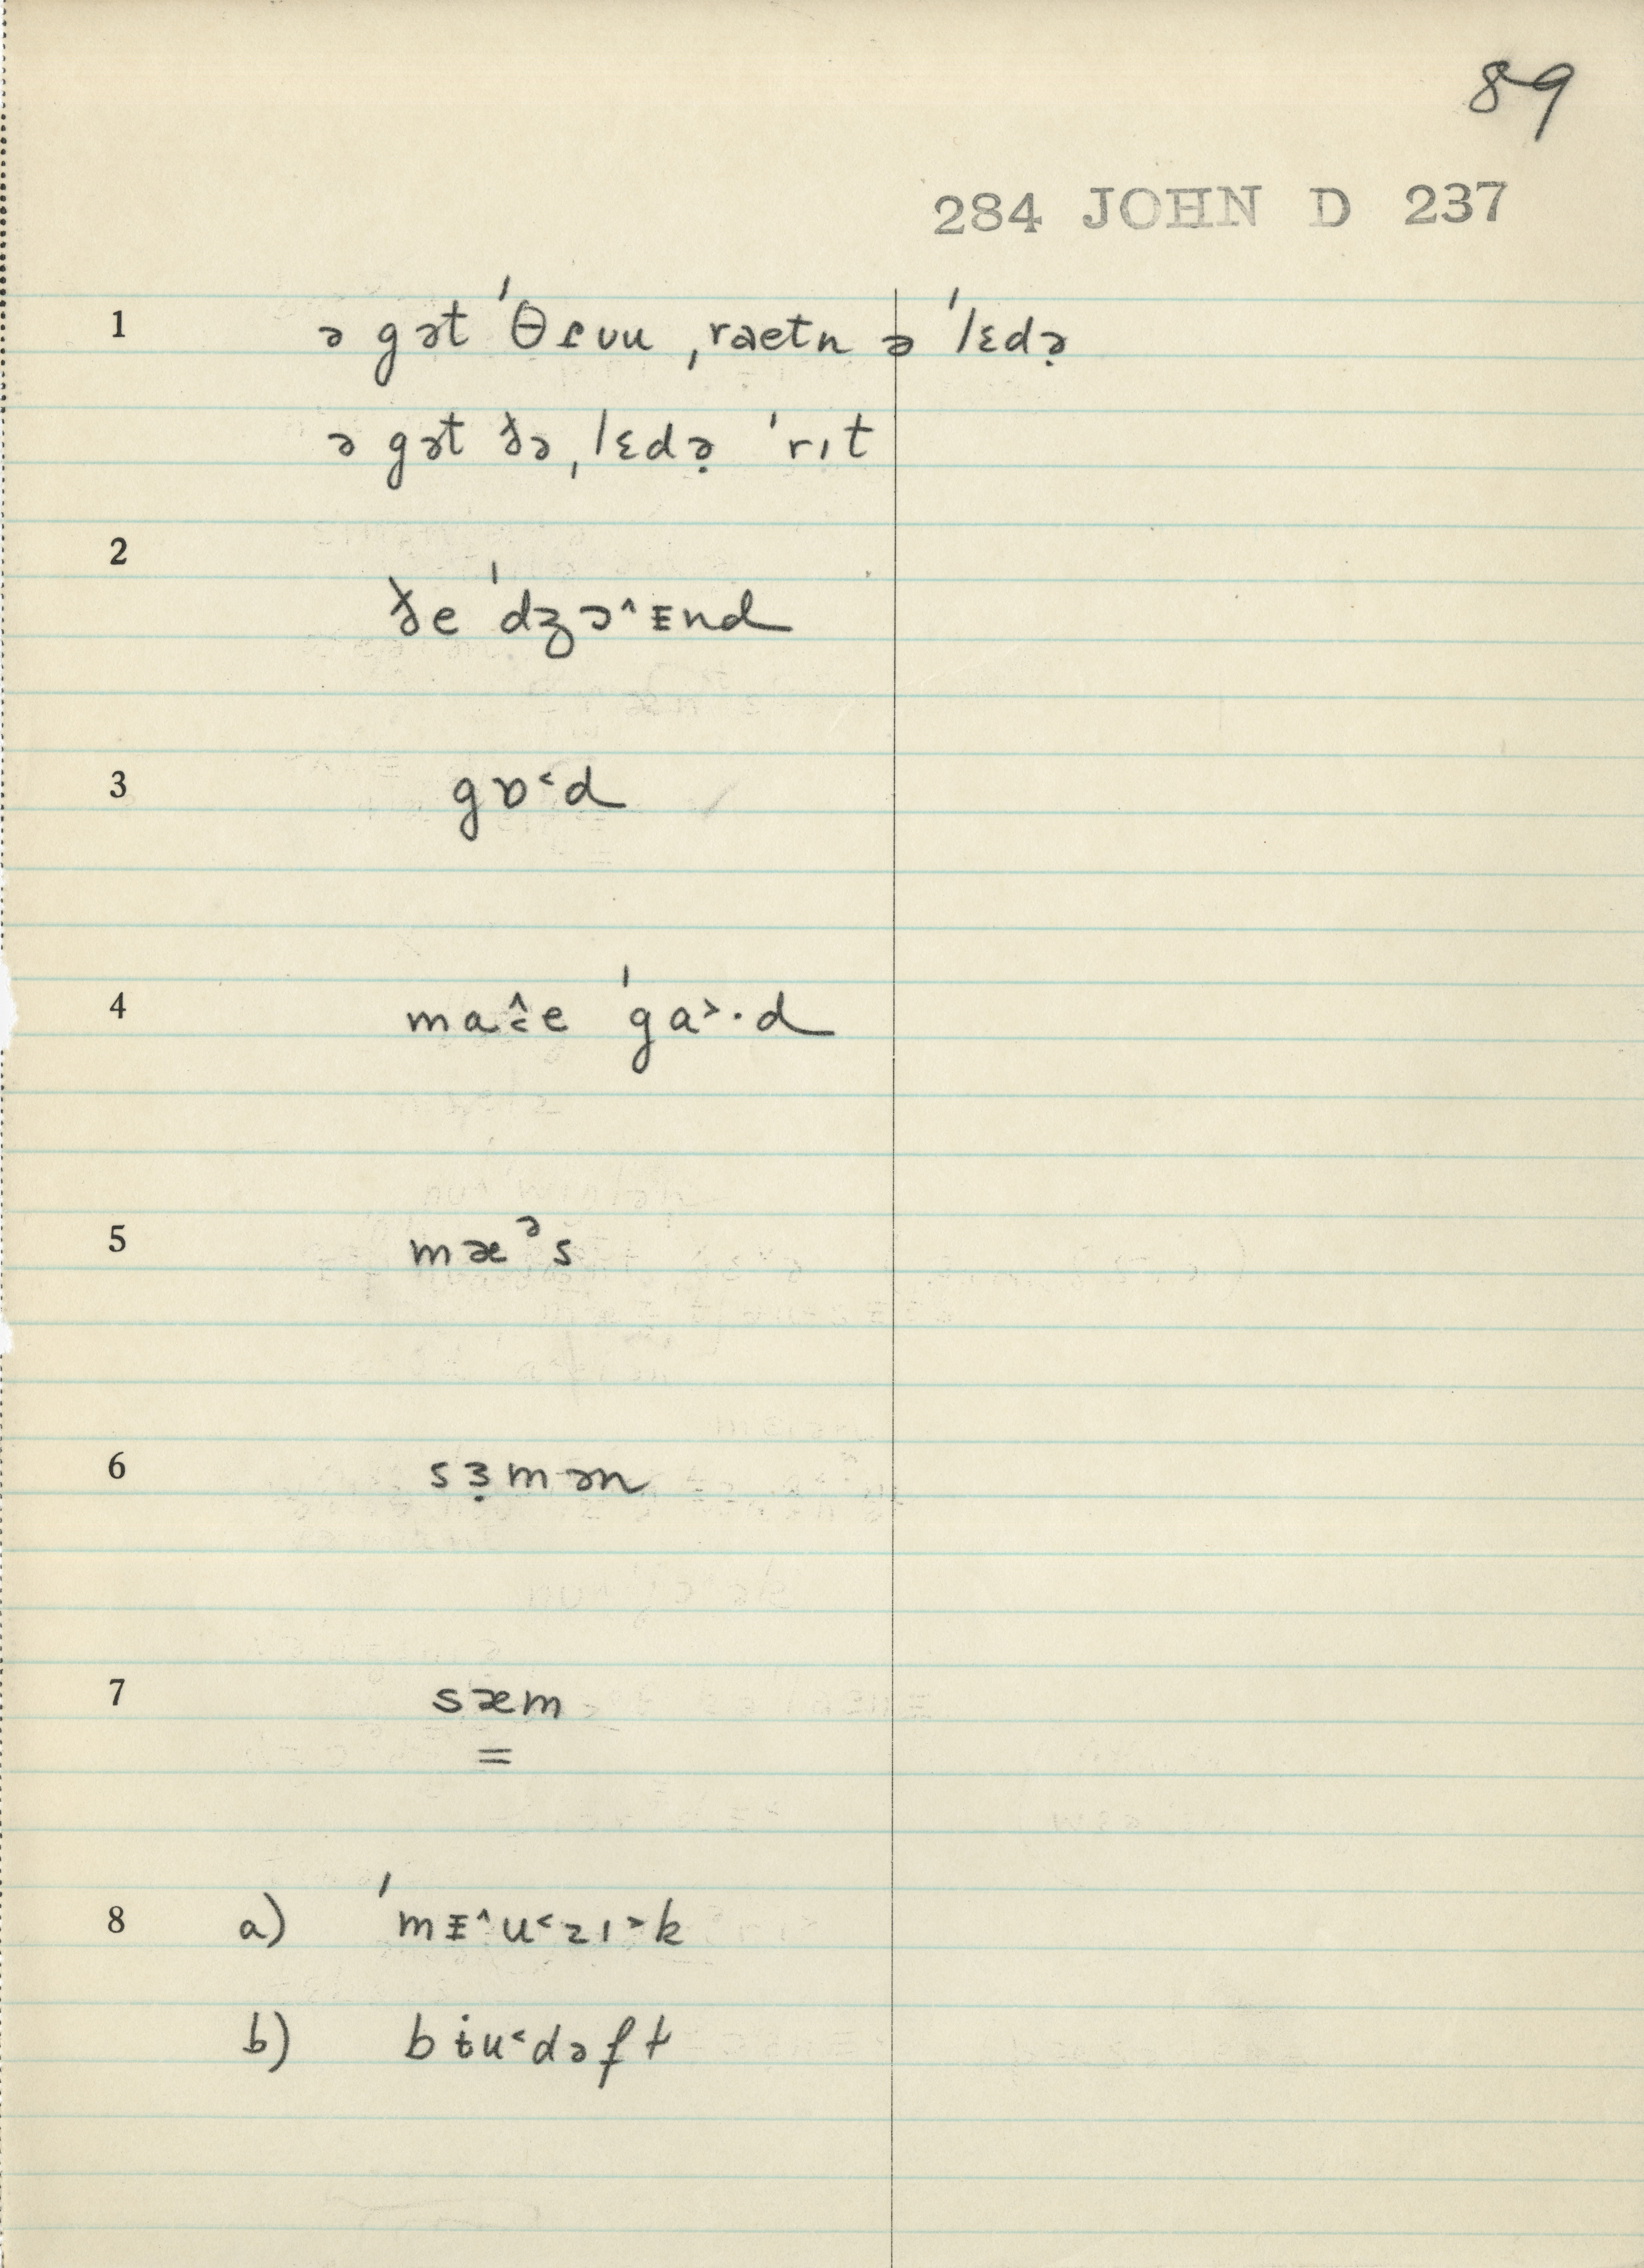 89
284 JOHN D 237
1 ə gət ˈθɾuu ˌraetn ə ˈlɛdə̣
ə gət ðə ˌlɛdə̣ ˈrıt
2
ðe ˈdʒɔ^ᴟnd
3 gɒ˂d
4 ma˄˂e ˈga˃·d
5 mæᵊs
6 sɜ̣mən
7 sæm
=
8 a) ˈmᴟ^u˂zı˃k
b) bɨu˂dəft